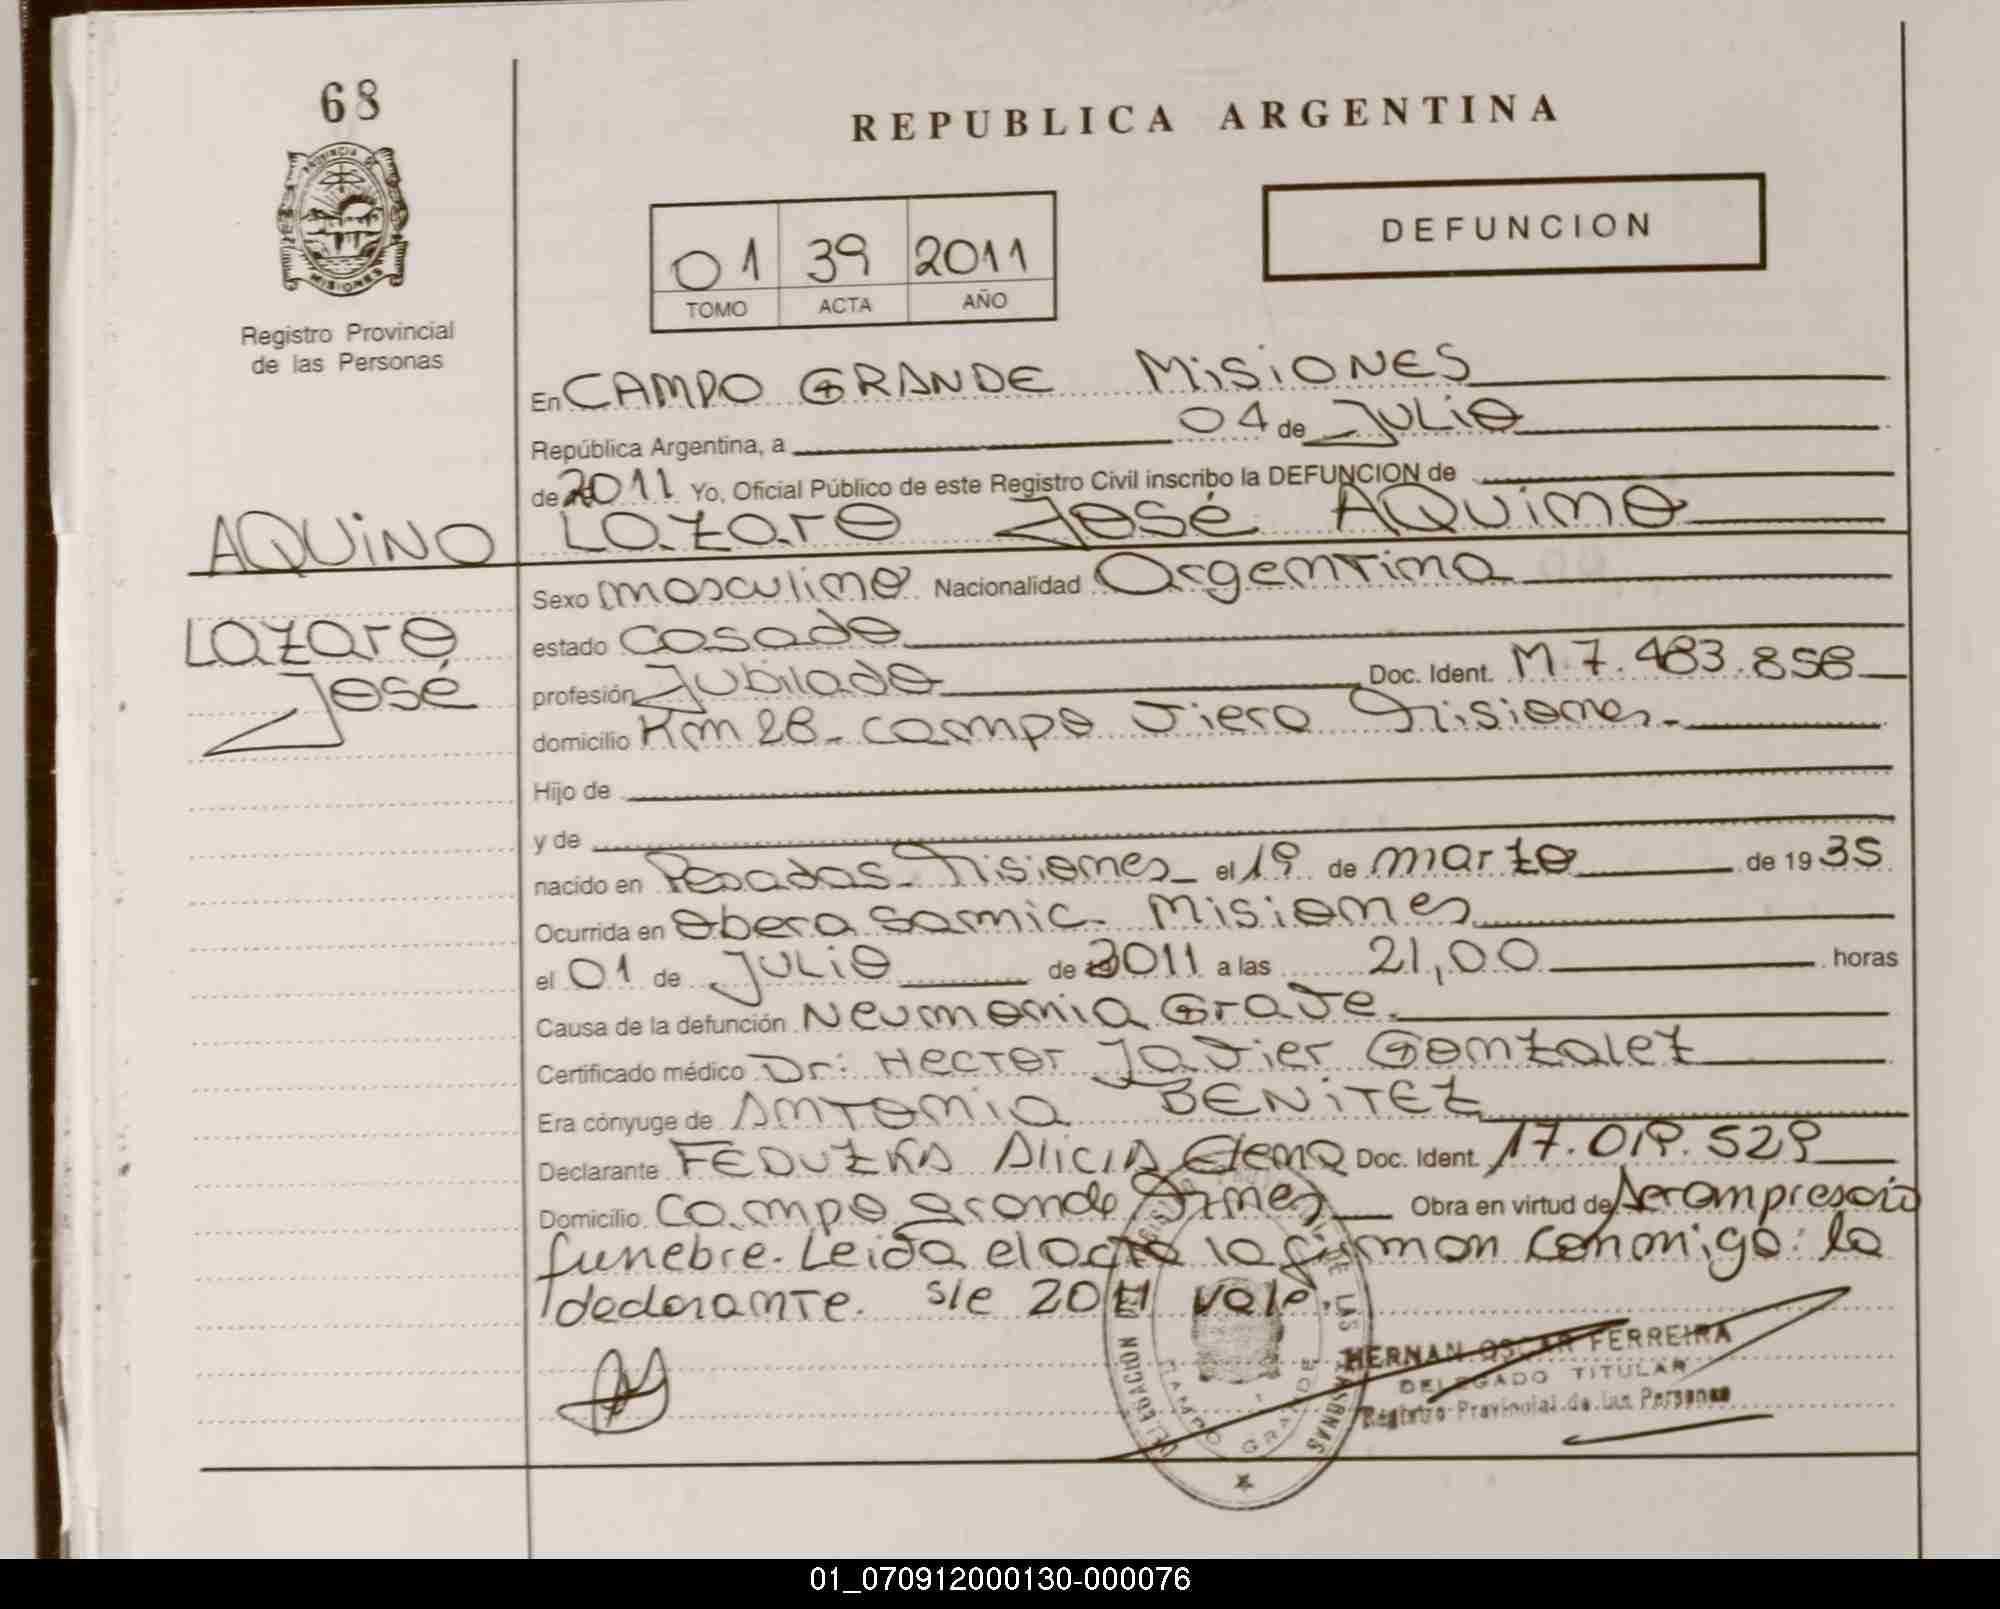 68
REPUBLICA ARGENTINA
PROVINCIA DE MISIONES
DEFUNCION
01 39 2011
TOMO ACTA AÑO
Registro Provincial
de las Personas
En CAMPO GRANDE MISIONES
República Argentina, a 04 de JULIO
de 2011 Yo, Oficial Público de este Registro Civil inscribo la DEFUNCION de
AQUINO Lazaro José AQuino
Sexo masculino Nacionalidad Argentina
Lazaro estado Casado
José profesión Jubilado Doc. Ident. M 7.483.858
domicilio Km 28 - campo Viera Misiones -
Hijo de
y de
nacido en Posadas - Misiones - el 19 de marzo de 1935
Ocurrida en Obera Samic - Misiones
el 01 de JULIO de 2011 a las 21,00 horas
Causa de la defunción Neumonia Grave.
Certificado médico Dr: Hector Javier Gonzalez
Era cónyuge de Antonia BENITEZ
Declarante FEDUZKA Alicia Elena Doc. Ident. 17.019.529
Domicilio Campo grande Mnes Obra en virtud de
funebre. Leida el acta la firman conmigo: la
declarante. s/e 2011 vale.
DELEGACION LAS PERSONAS
CAMPO GRANDE
HERNAN OSCAR FERREIRA
DELEGADO TITULAR
Registro Provincial de las Personas
01_070912000130-000076